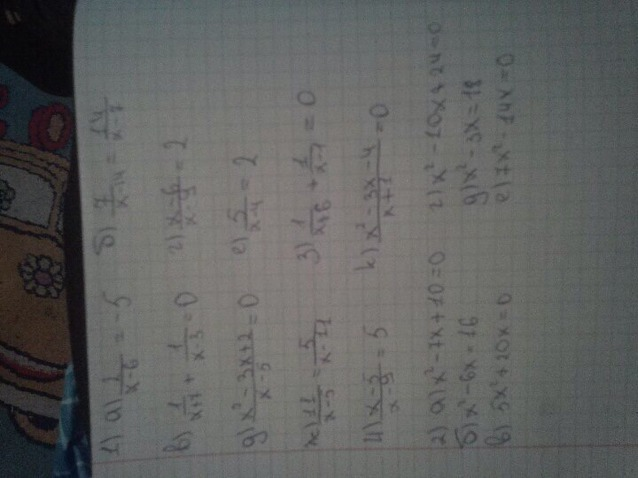 1) а) 1/(x-6) = -5   б) 7/(x-14) = 14/(x-7)
в) 1/(x+7) + 1/(x-3) = 0   г) (x-6)/(x-9) = 2
д) (x²-3x+2)/(x-5) = 0   е) 5/(x-4) = 2
ж) 11/(x-5) = 5/(x-11)   з) 1/(x+6) + 1/(x-7) = 0
и) (x-5)/(x-9) = 5   к) (x²-3x-4)/(x+1) = 0
2) а) x²-7x+10=0   г) x²-10x+24=0
б) x²-6x=16   д) x²-3x=18
в) 5x²+20x=0   е) 7x²-14x=0